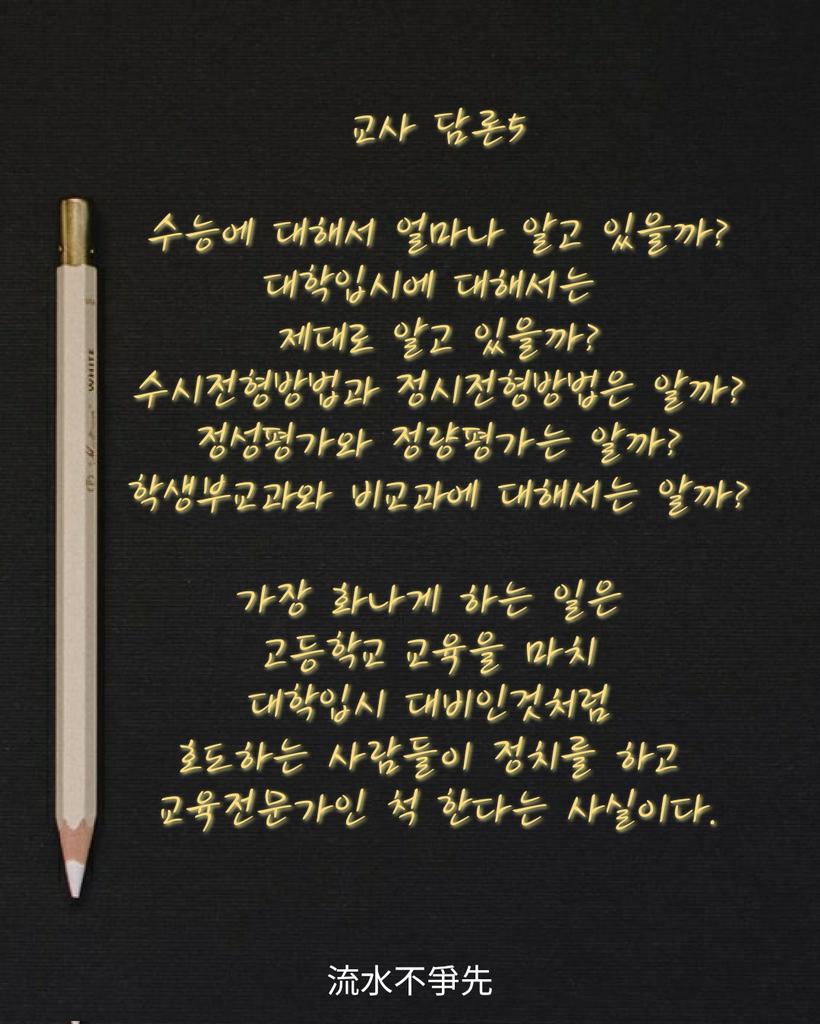 교사 담론5
수능에 대해서 얼마나 알고 있을까?
대학입시에 대해서는
제대로 알고 있을까?
수시전형방법과 정시전형방법은 알까?
정성평가와 정량평가는 알까?
학생부교과와 비교과에 대해서는 알까?
가장 화나게 하는 일은
고등학교 교육을 마치
대학입시 대비인것처럼
호도하는 사람들이 정치를 하고
교육전문가인 척 한다는 사실이다.
流水不爭先
WHITE